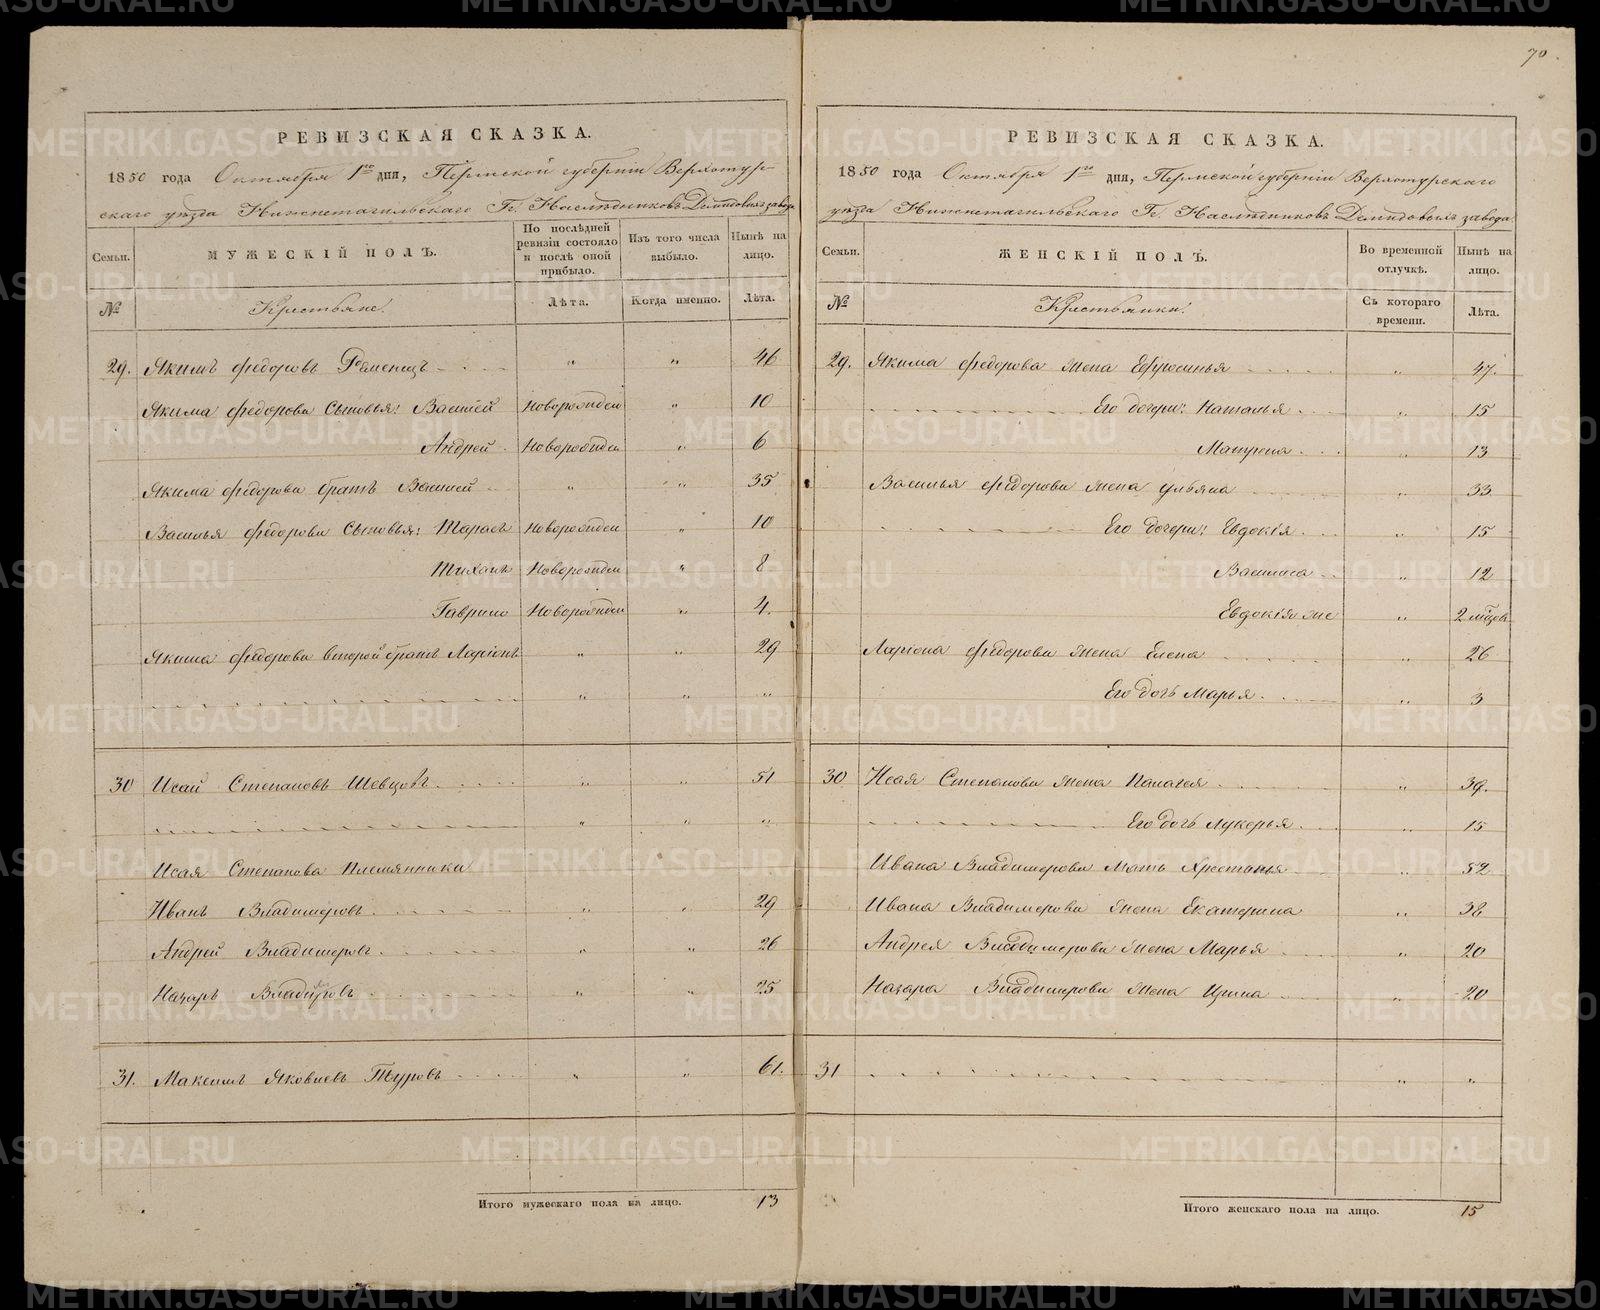 70.
РЕВИЗСКАЯ СКАЗКА.
1850 года Октября 1го дня, Пермской губерніи Верхотур-
скаго уѣзда Нижнетагильскаго Гг. Наслѣдниковъ Демидовыхъ завода
Семьи. МУЖЕСКІЙ ПОЛЪ. По послѣдней ревизіи состояло и послѣ оной прибыло. Изъ того числа выбыло. Нынѣ на лицо.
№ Крестьяне. Лѣта. Когда именно. Лѣта.
29. Якимъ Федоровъ " " 46
Якима Федорова Сыновья: Василей Новорожден " 10
Андрей Новорожден " 6
Якима Федорова братъ Василей " " 35
Василья Федорова Сыновья: Тарасъ Новорожден " 10
Тиханъ Новорожден " 8
Гаврило Новорожден " 4.
Якима Федорова второй братъ Ларіонъ " " 29
" " "
30 Исай Степановъ Шевцовъ " " 51
" " "
Исая Степанова Племянники
Иванъ Владимеровъ " " 29
Андрей Владимеровъ " " 26
Назаръ Владимровъ " " 25
31. Максимъ Яковлевъ Туровъ " " 61.
Итого мужескаго пола на лицо. 13
РЕВИЗСКАЯ СКАЗКА.
1850 года Октября 1го дня, Пермской губерніи Верхотурскаго
уѣзда Нижнетагильскаго Гг. Наслѣдниковъ Демидовыхъ завода.
Семьи. ЖЕНСКІЙ ПОЛЪ. Во временной отлучкѣ. Нынѣ на лицо.
№ Крестьянки. Съ котораго времени. Лѣта.
29. Якима Федорова жена Ефросинья " 47.
Его дочери: Наталья " 15
Матрена " 13
Василья Федорова жена Ульяна " 33
Его дочери: Евдокія " 15
Василиса " 12
Евдокія же " 2 мѣсяц
Ларіона Федорова жена Елена " 26
Его дочь Марья " 3
30 Исая Степанова жена Палагея " 39.
Его дочь Лукерья " 15
Ивана Владимерова мать Хрестинья " 52
Ивана Владимерова жена Екатерина " 38
Андрея Владимерова жена Марья " 20
Назара Владимирова жена Ирина " 20
31 " "
Итого женскаго пола на лицо. 15
METRIKI.GASO-URAL.RU